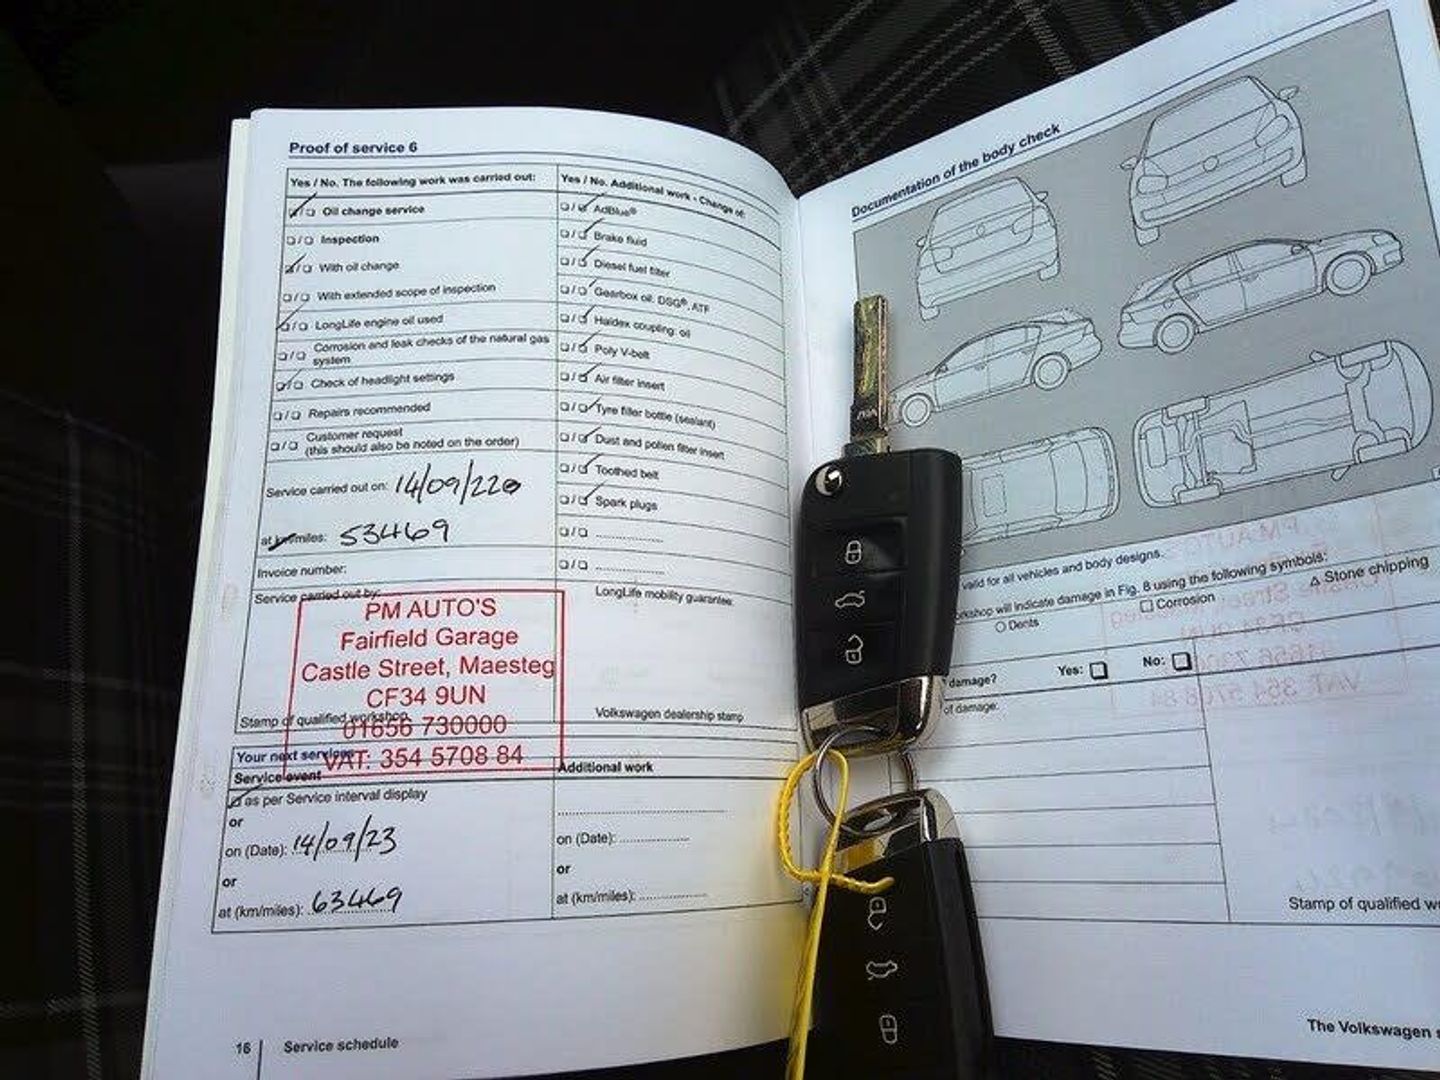 Proof of service 6
Yes / No. The following work was carried out:
Oil change service
Inspection
With oil change
With extended scope of inspection
LongLife engine oil used
Corrosion and leak checks of the natural gas
system
Check of headlight settings
Repairs recommended
Customer request
(this should also be noted on the order)
Service carried out on: 14/09/22
at km/miles: 53469
Invoice number:
Service carried out by:
PM AUTO'S
Fairfield Garage
Castle Street, Maesteg
CF34 9UN
01656 730000
VAT: 354 5708 84
Stamp of qualified workshop
Yes / No. Additional work - Change of:
AdBlue®
Brake fluid
Diesel fuel filter
Gearbox oil: DSG®, ATF
Haldex coupling: oil
Poly V-belt
Air filter insert
Tyre filler bottle (sealant)
Dust and pollen filter insert
Toothed belt
Spark plugs
LongLife mobility guarantee:
Volkswagen dealership stamp
Your next services
Service event
as per Service interval display
or
on (Date): 14/09/23
or
at (km/miles): 63469
Additional work
on (Date):
or
at (km/miles):
16 Service schedule
Documentation of the body check
valid for all vehicles and body designs.
will indicate damage in Fig. 8 using the following symbols:
○ Dents ❑ Corrosion ∆ Stone chipping
damage? Yes: ❑ No: ❑
of damage:
Stamp of qualified
The Volkswagen